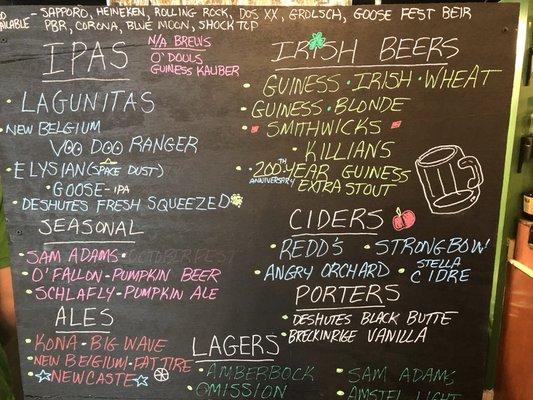 AILABLE - SAPPORO, HEINEKEN, ROLLING ROCK, DOS XX, GROLSCH, GOOSE FEST BEIR
PBR, CORONA, BLUE MOON, SHOCK TOP
IPAS
N/A BREWS
O'DOULS
GUINESS KALIBER
LAGUNITAS
NEW BELGIUM
VOO DOO RANGER
ELYSIAN (SPACE DUST)
GOOSE - IPA
DESHUTES FRESH SQUEEZED
SEASONAL
SAM ADAMS - OCTOBERFEST
O'FALLON - PUMPKIN BEER
SCHLAFLY - PUMPKIN ALE
ALES
KONA - BIG WAVE
NEW BELGIUM - FAT TIRE
NEWCASTE
IRISH BEERS
GUINESS - IRISH - WHEAT
GUINESS - BLONDE
SMITHWICKS
KILLIANS
200TH YEAR GUINESS
ANNIVERSARY EXTRA STOUT
CIDERS
REDD'S • STRONGBOW
ANGRY ORCHARD • STELLA CIDRE
PORTERS
DESHUTES BLACK BUTTE
BRECKINRIGE VANILLA
LAGERS
AMBERBOCK • SAM ADAMS
OMISSION • AMSTEL LIGHT